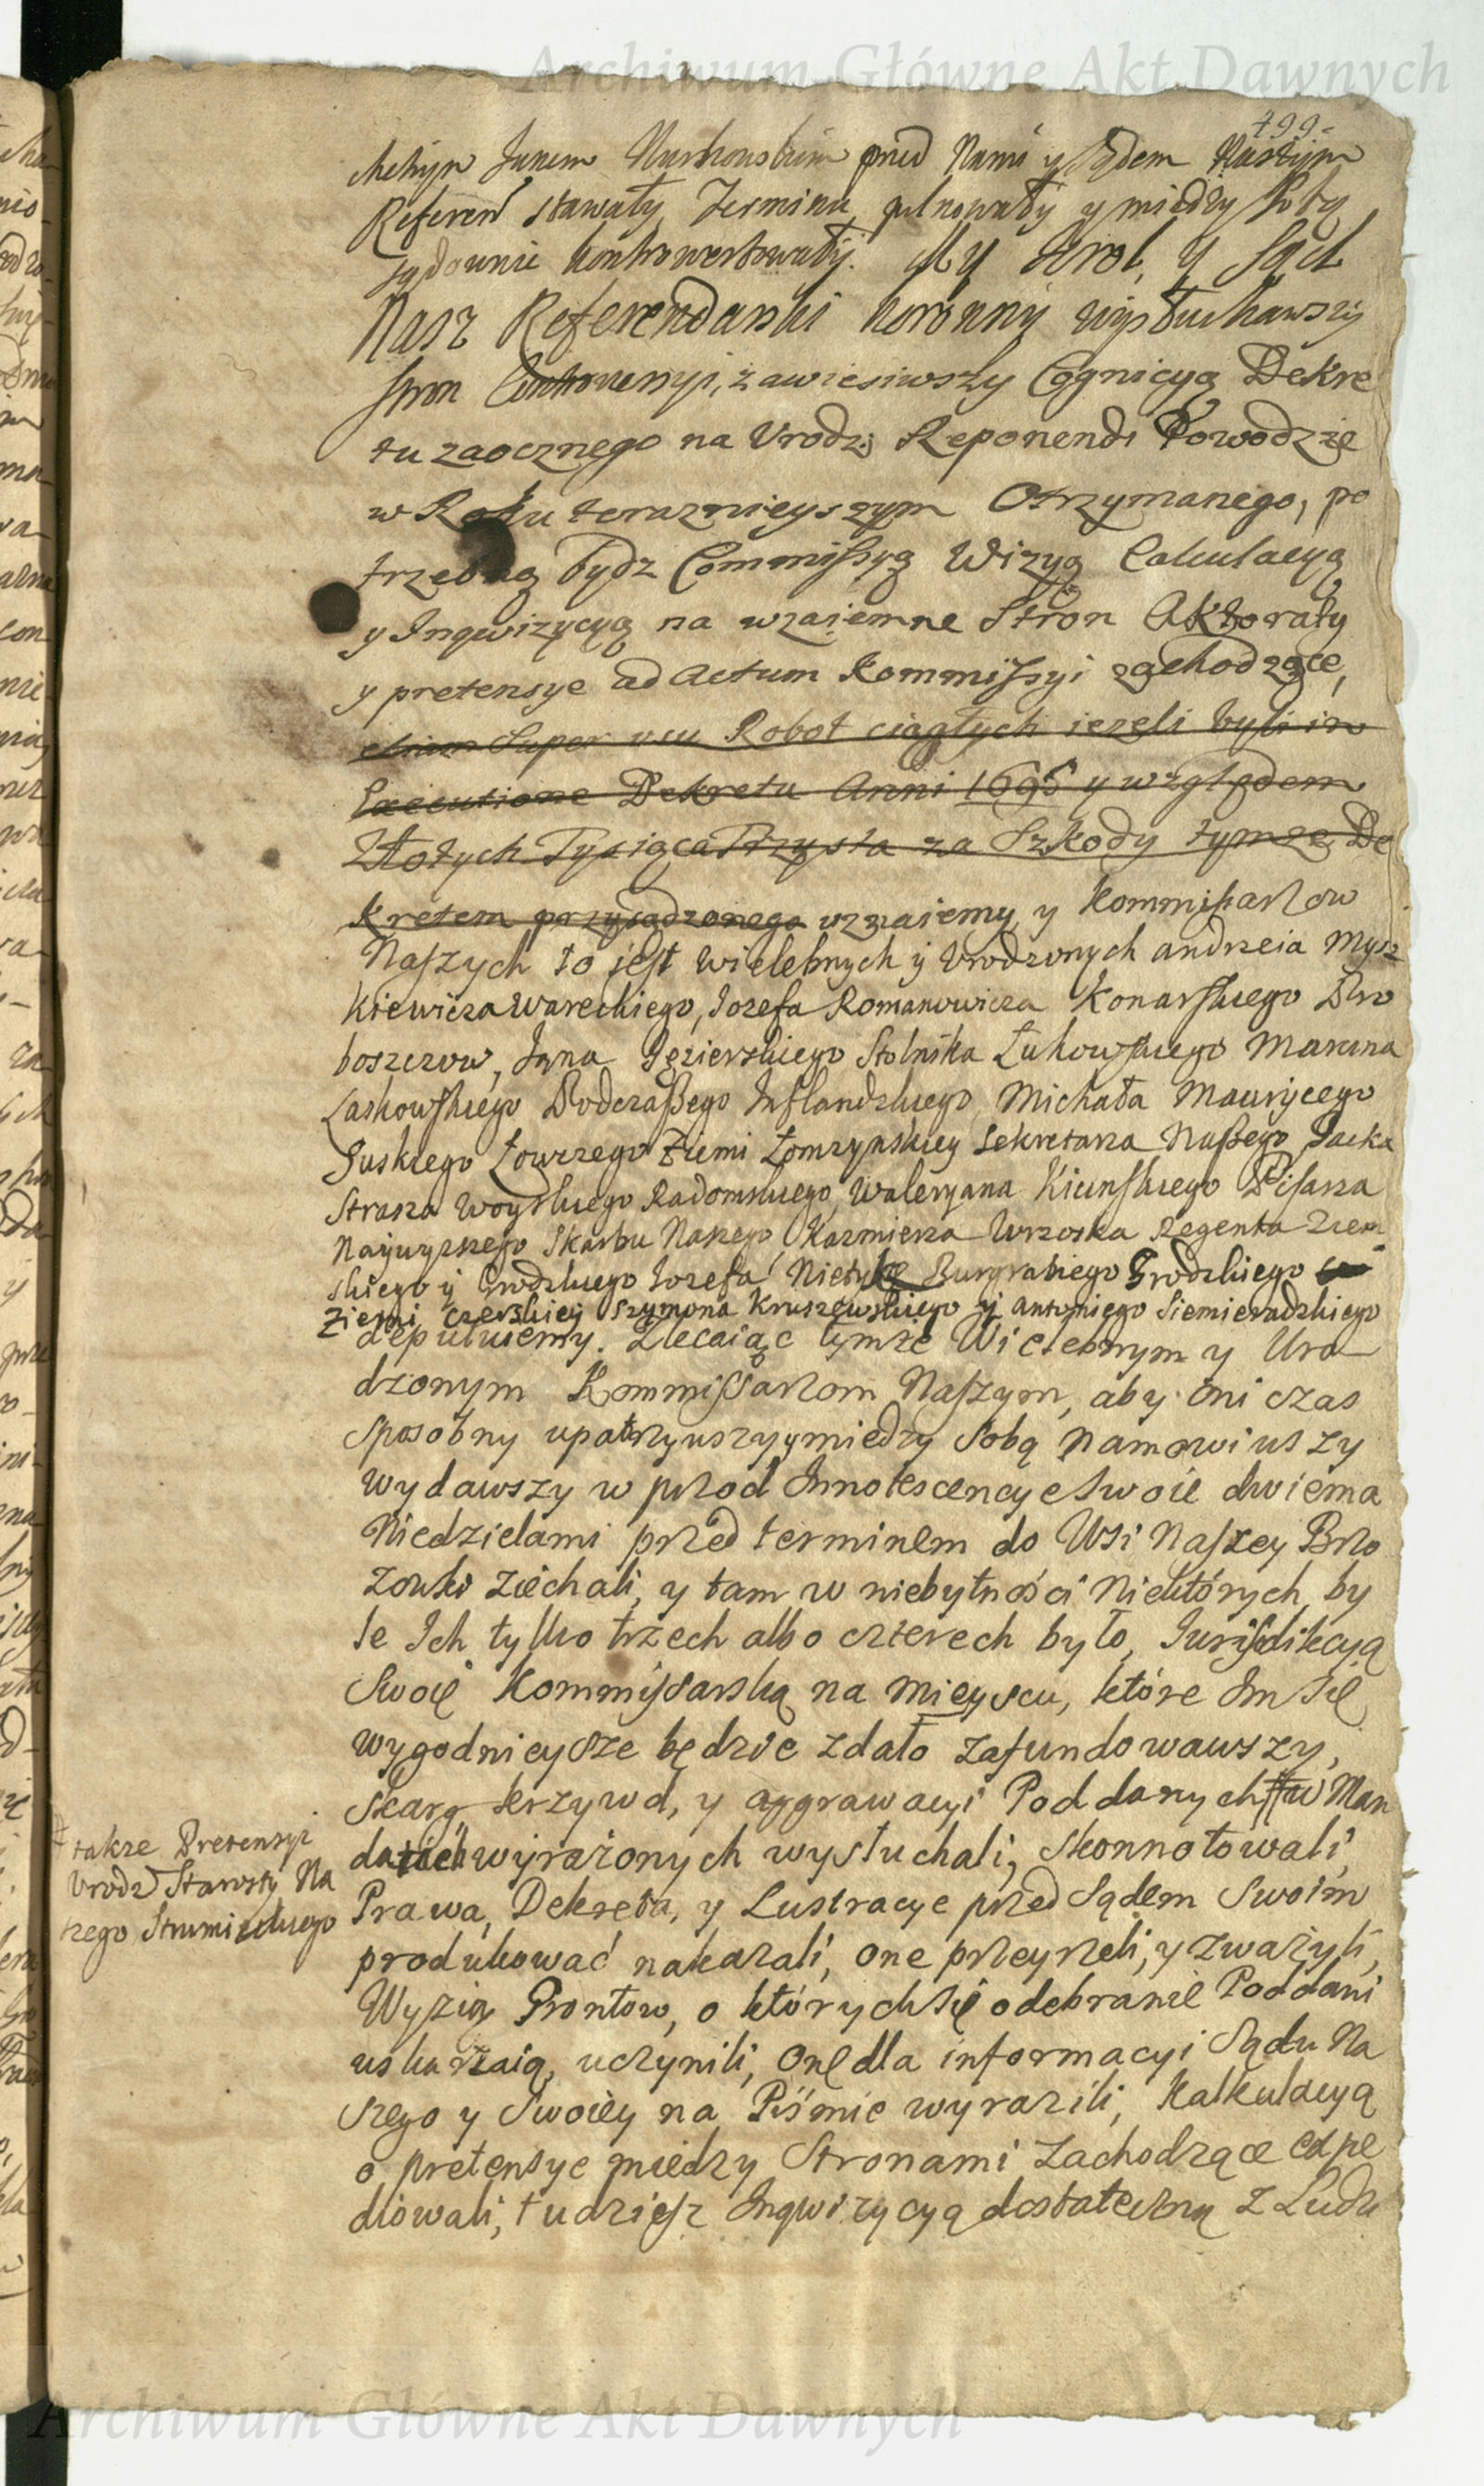 Archiwum Główne Akt Dawnych
499
Janem przed Nami y Sądem Naszym
Referen stawały Terminu pilnowały y miedzy Sobą
sądownie kontrowertowały. My Krol, y Sąd
Nasz Referendarski Koronny wysłuchawszy
Stron Controwersyi, zawiesiwszy Cognicyą Dekre
tu zaocznego na Urodz: Reponendi Powodzie
w Roku teraznieyszym Otrzymanego, po
trzebną bydz Commissyą Wizyą Calculacyą
y Inqwizycyą na wzaiemne Stron Aktoraty
y pretensye ad actum Kommissyi zachodzące,
etiam Super usu Robot ciągłych iezeli byli in
Executione Dekretu Anni 1695 y względem
Złotych Tysiąca Trzysta za Szkody tymze De
kretem przysądzonego uznaiemy, y Kommissarzow
Naszych to jest Wielebnych ÿ Urodzonych Andrzeia Mysz
kiewicza Wareckiego, Iozefa Romanowicza Konarskiego Pro
boszczow, Jana Jezierskiego Stolnika Łukowskiego Marcina
Laskowskiego Podczaszego Inflandzkiego, Michała Maurycego
Suskiego Łowczego Ziemi Łomzynskiey Sekretarza Naszego, Jacka
Strasza Woyskiego Radomskiego, Waleryana Kicinskiego Pisarza
Naywyzszego Skarbu Naszego Kazmierza Wrzoska Regenta Ziem
skiego ÿ Grodzkiego Iozefa Burgrabiego Grodzkiego
Ziemi Czerskiey Szymona Kruszewskiego ÿ Antoniego Siemieradzkiego
deputuiemy. Zlecaiąc tymze Wielebnym y Uro
dzonym Kommissarzom Naszym, aby oni czas
sposobny upatrzywszy y miedzy Sobą namowiwszy
wydawszy w przod Innotescencye Swoie dwiema
Niedzielami przed terminem do Wsi Naszey Brzo
zowki ziechali, y tam w niebytności Niektórych, by
le Ich tylko trzech albo czterech było, Iurisdikcyą
Swoię Kommissarską na mieyscu, które Im się
wygodnieysze będzie zdało zafundowawszy,
Skarg krzywd, y aggrawacyi Poddanych # w Man
datach wyrażonych wysłuchali, Skonnotowali,
Prawa, Dekreta, y Lustracye przed Sądem Swoim
produkować nakazali, one przeyrzeli, y zważyli,
Wyzią Grontow, o których się odebranie Poddani
uskarzaią, uczynili, one dla informacyi Sądu Na
szego y Swoiey na Piśmie wyrazili, Kalkulacyą
o pretensye miedzy Stronami zachodzące expe
diowali, tudziesz Inqwizycyą dostateczną z Ludzi
# takze Pretensyi
Urodz Starosty Na
szego
Archiwum Główne Akt Dawnych